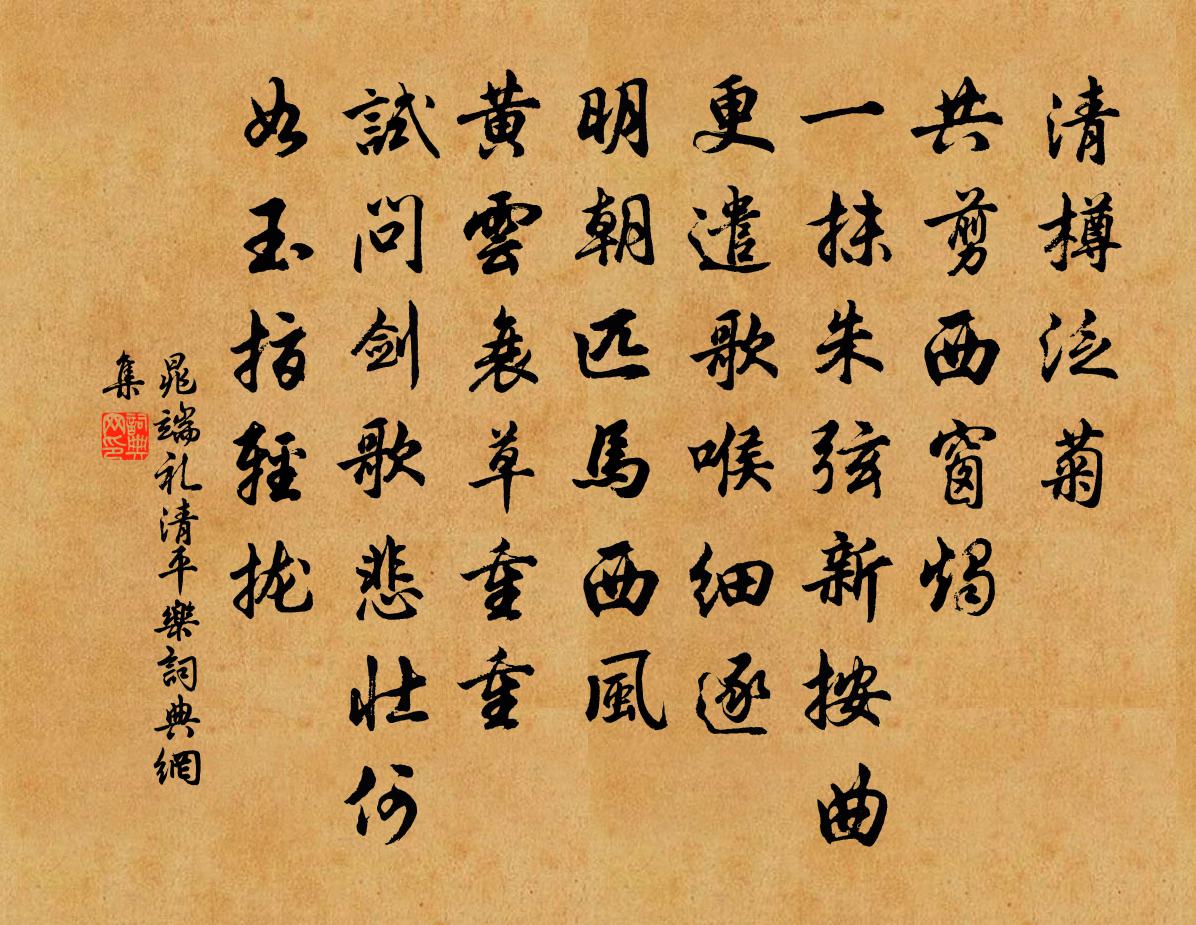 清樽泛菊
共剪西窗燭
一抹朱弦新按曲
更遣歌喉細逐
明朝匹馬西風
黃雲衰草重重
試問劍歌悲壯何
如玉指輕拢
晁端礼清平樂詞典網
集
詞典网印